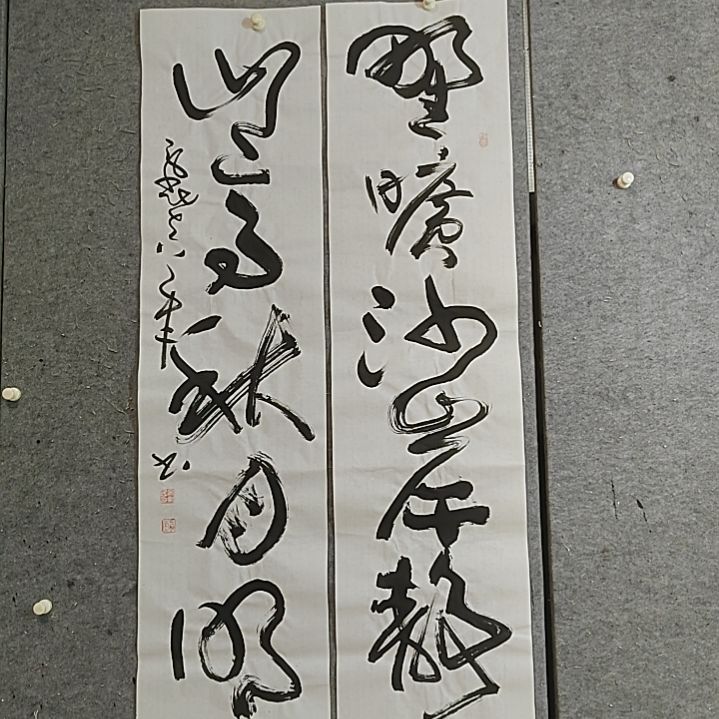 野曠沙岸静
天高秋月明